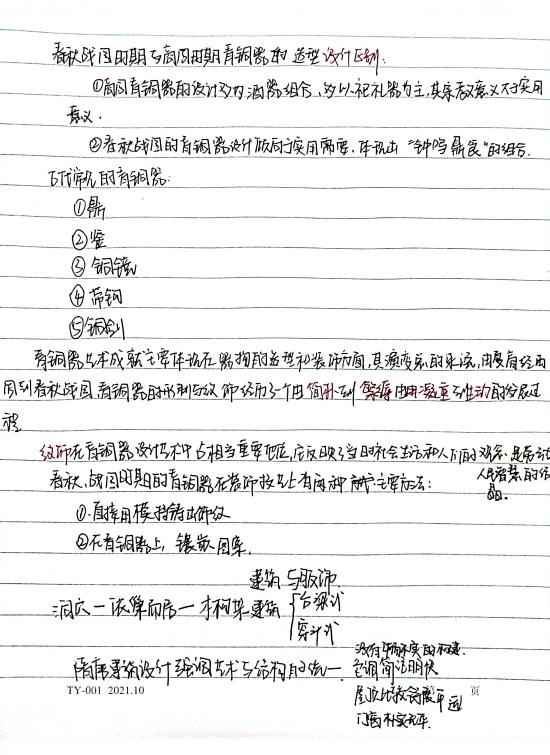 春秋战国时期与商周时期青铜器的造型设计区别:
①商周青铜器的设计多为酒器组合,多以祀礼器为主,其宗教意义大于实用
意义.
②春秋战国的青铜器设计倾向于实用需要,体现出“钟鸣鼎食”的组合.
古代常见的青铜器:
①鼎
②鉴
③铜镜
④带钩
⑤铜剑
青铜器艺术成就主要体现在器物的造型和装饰方面,其演变系的来说,由夏商经西
周到春秋战国,青铜器的形制与纹饰经历了一个由简朴到繁缛由凝重至生动的发展过
程
纹饰在青铜器设计艺术中占相当重要地位,它反映了当时社会生活和人们的观念,是劳动
人民智慧的结
晶.
春秋、战国时期的青铜器在装饰技法上有两种主要方法:
①直接用模持铸出饰纹
②在青铜器上,镶嵌图案.
建筑与服饰.
洞穴—依算而居—木构架建筑
抬梁式
穿斗式
隋唐建筑设计强调艺术与结构的统一.
没有 的构建.
色调简洁明快
屋顶比较舒展平远
门窗朴实无华.
TY-001 2021.10
页